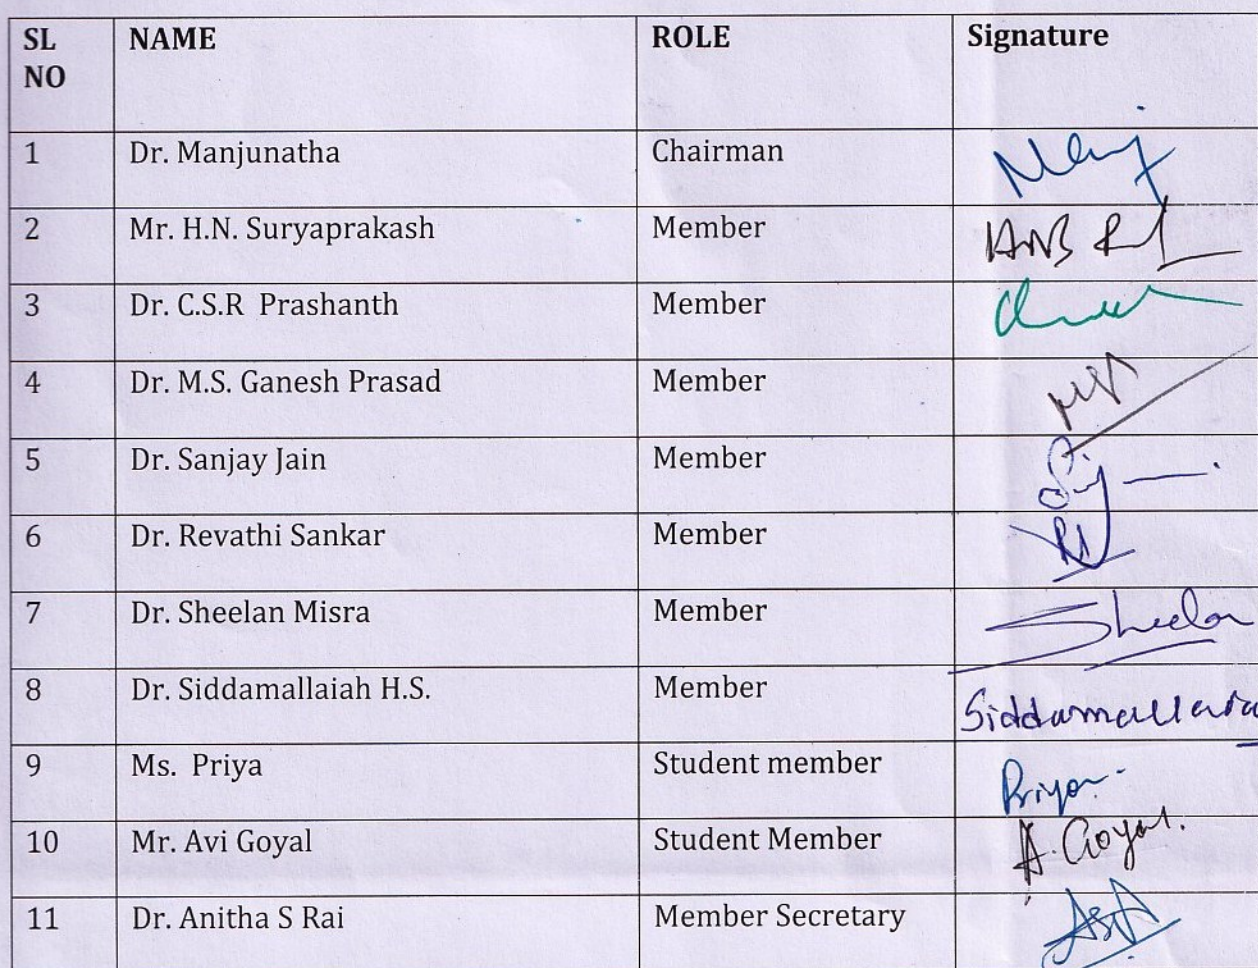 SL NO NAME ROLE Signature
1 Dr. Manjunatha Chairman
2 Mr. H.N. Suryaprakash Member
3 Dr. C.S.R Prashanth Member
4 Dr. M.S. Ganesh Prasad Member
5 Dr. Sanjay Jain Member
6 Dr. Revathi Sankar Member
7 Dr. Sheelan Misra Member Sheelan
8 Dr. Siddamallaiah H.S. Member
9 Ms. Priya Student member Priya
10 Mr. Avi Goyal Student Member A. Goyal.
11 Dr. Anitha S Rai Member Secretary